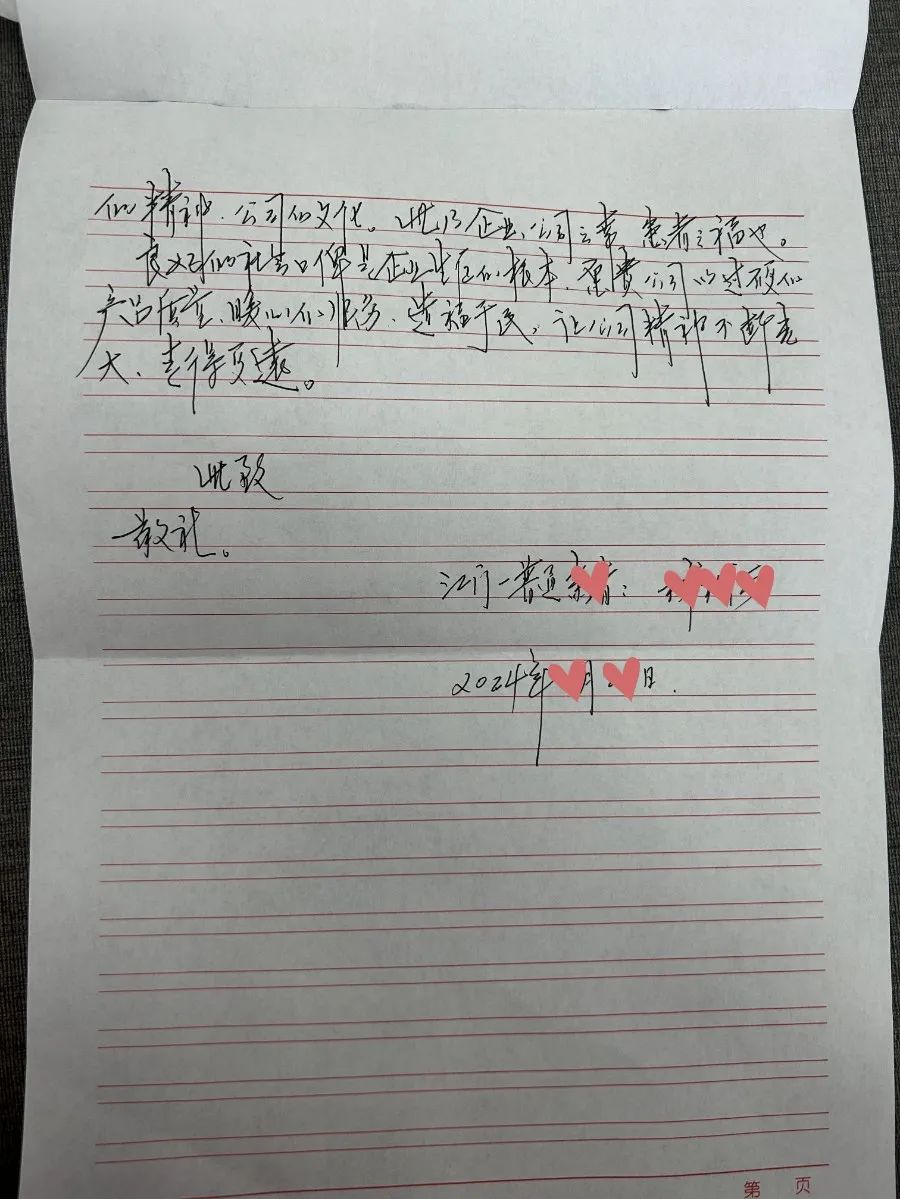 的精神、公司的文化。此乃企业、公司之幸，患者之福也。
良好的社会口碑是企业生存的根本，愿贵公司以过硬的
产品质量、暖心的服务，造福于民，让公司精神不断壮
大、走得更远。
此致
敬礼。
江门一普通患者：
2024年 月 日.
第 页